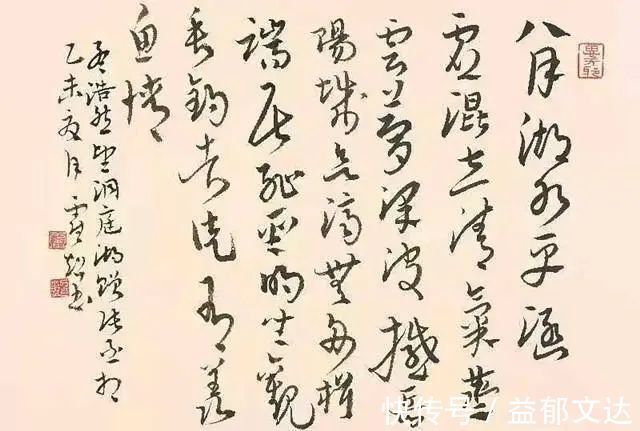 八月湖水平涵
虛混太清氣蒸
雲夢澤波撼岳
陽城欲濟無舟楫
端居恥聖明坐觀
垂釣者徒有羨
魚情
孟浩然望洞庭湖贈張丞相
乙未夏月 超書
快传号 / 益郁文达